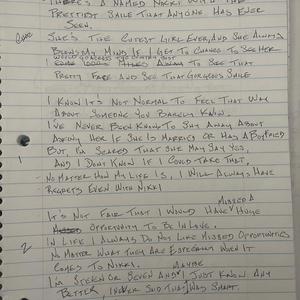 THERE'S A NAMED NIKKI WITH THE
PRETTIEST SMILE THAT ANYONE HAS EVER
SEEN.
SHE'S THE CUTEST GIRL EVER, AND SHE ALWAYS
BLOWS MY MIND IF I GET TO CHANCE TO SEE HER
WOULD CROSS THE COUNTRY JUST
MILES ALWAYS TO SEE THAT
PRETTY FACE AND SEE THAT GORGEOUS SMILE
I KNOW IT'S NOT NORMAL TO FEEL THAT WAY
ABOUT SOMEONE YOU BARELY KNOW.
I'VE NEVER BEEN KNOWN TO SHY AWAY ABOUT
ASKING HER IF SHE IS MARRIED OR HAS A BOYFRIEND
BUT, I'M SCARED THAT SHE MAY SAY YES,
1
AND I DON'T KNOW IF I COULD TAKE THAT,
NO MATTER HOW MY LIFE IS, I WILL ALWAYS HAVE
REGRETS EVEN WITH NIKKI
MISSED A
IT'S NOT FAIR THAT I WOULD HAVE HUGE
OPPORTUNITY TO BE IN LOVE.
2
IN LIFE I ALWAYS DO NOT LIKE MISSED OPPORTUNITIES
NO MATTER WHAT THEY ARE ESPECIALLY WHEN IT
COMES TO NIKKI.
MAYBE
I'M SIXTEEN OR SEVEN AND I JUST KNOW ANY
BETTER, I NEVER SAID THAT I WAS SMART.